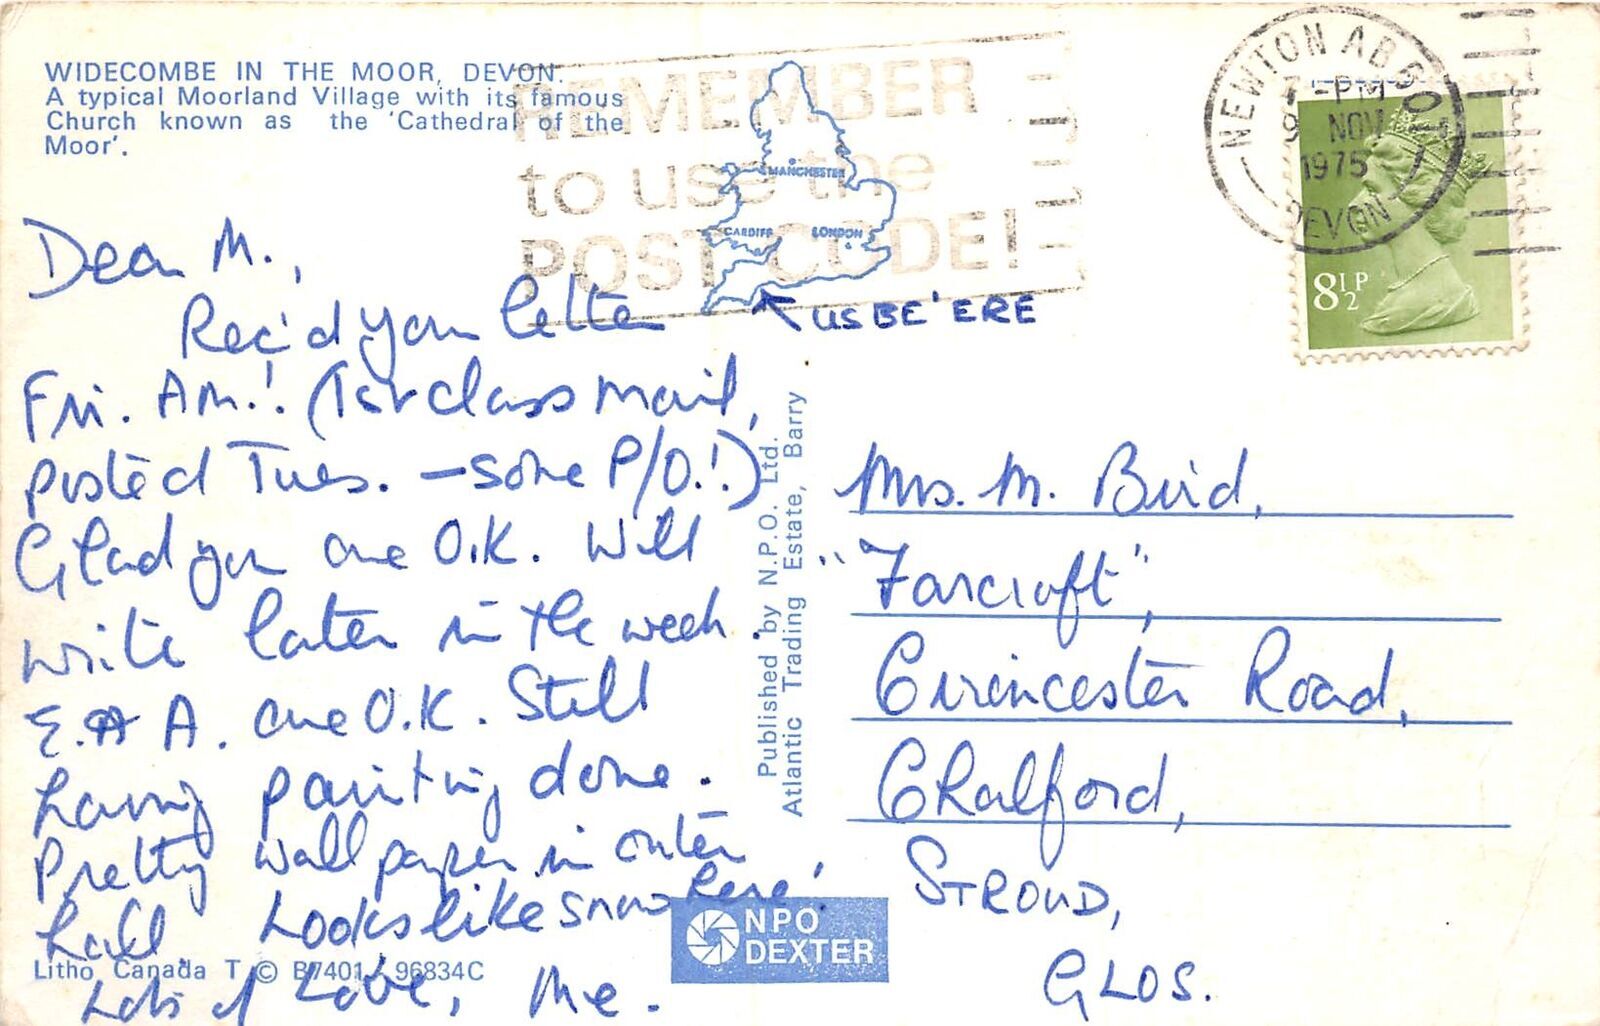 WIDECOMBE IN THE MOOR, DEVON.
A typical Moorland Village with its famous
Church known as the 'Cathedral of the
Moor'.
REMEMBER
to use the
POST CODE!
MANCHESTER
CARDIFF LONDON
NEWTON ABBOT
7 - PM
NOV
1975
DEVON
8½P
US BE 'ERE
Dear M.,
Rec'd your letter
Fri. Am.! (1st class mail,
posted Tues. - some P/O.!)
Glad you are O.K. Will
write later in the week.
E. A. are O.K. Still
having painting done.
Pretty wall paper in outer
hall. Looks like snow here!
Lots of Love, Me.
Published by N.P.O. Ltd.
Atlantic Trading Estate, Barry
Mrs. M. Bird,
"Farcroft",
Cirencester Road,
Chalford,
STROUD,
GLOS.
NPO
DEXTER
Litho Canada T © B7401 / 96834C